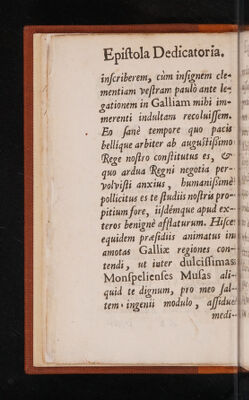 Epiſtola Dedicatoria.
inſcriberem, cùm inſignem cle-
mentiam veſtram paulò ante le-
gationem in Galliam mihi im-
merenti indultam recoluiſſem.
Eo ſanè tempore quo pacis
bellique arbiter ab auguſtiſſimo
Rege noſtro conſtitutus es, &
quo ardua Regni negotia per-
volviſti anxius, humaniſſimè
pollicitus es te ſtudiis noſtris pro-
pitium fore, iiſdémque apud ex-
teros benignè afflaturum. Hiſce
equidem præſidiis animatus in
amotas Galliæ regiones con-
tendi, ut inter dulciſſimas
Monſpelienſes Muſas ali-
quid te dignum, pro meo ſal-
tem ingenii modulo, aſſidue
medi-